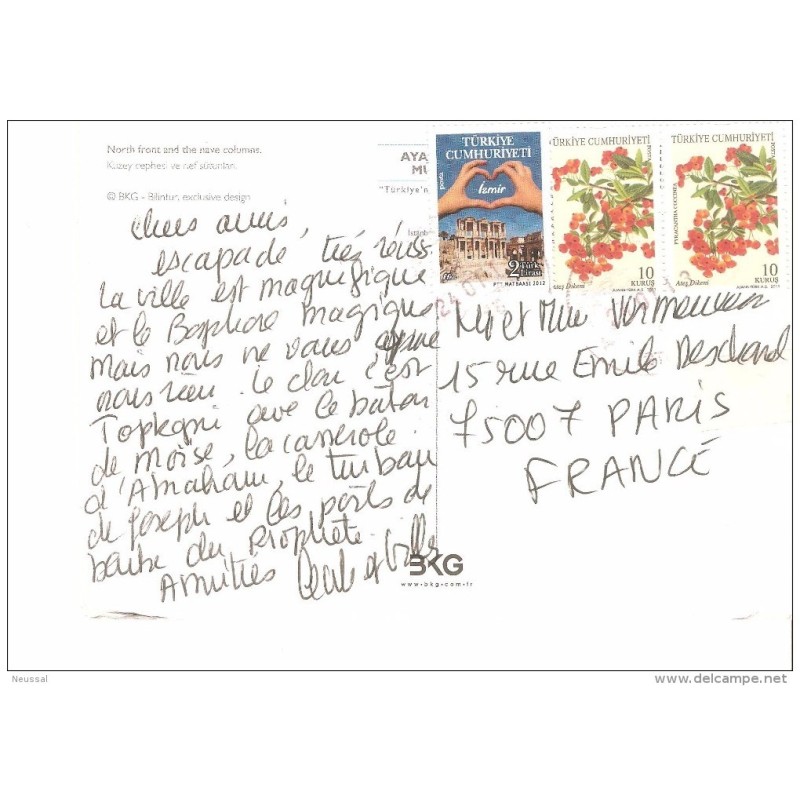 North front and the nave columns.
Kuzey cephesi ve nef sütunları.
© BKG - Bilintur, exclusive design
AYA
MU
"Türkiye'n
İstanb
TÜRKİYE
CUMHURİYETİ
posta
İzmir
2 Türk
Lirası
PTT MATBAASI 2012
TÜRKİYE CUMHURİYETİ
POSTA
10
KURUŞ
Ateş Dikeni
TÜRKİYE CUMHURİYETİ
POSTA
PYRACANTHA COCCINEA
10
KURUŞ
Ateş Dikeni
Chers amis,
escapade, très réuss
La ville est magnifique
et le Bosphore magique
mais nous ne vous
nous rien. Le clou c'est
Topkapi avec le bâton
de Moïse, la casserole
d'Abraham, le turban
de Joseph et les poils de
barbe du Prophète.
Amitiés
Mr et Mme
15 rue Emile Deschanel
75007 PARIS
FRANCE
BKG
www.bkg.com.tr
Neussal
© www.delcampe.net